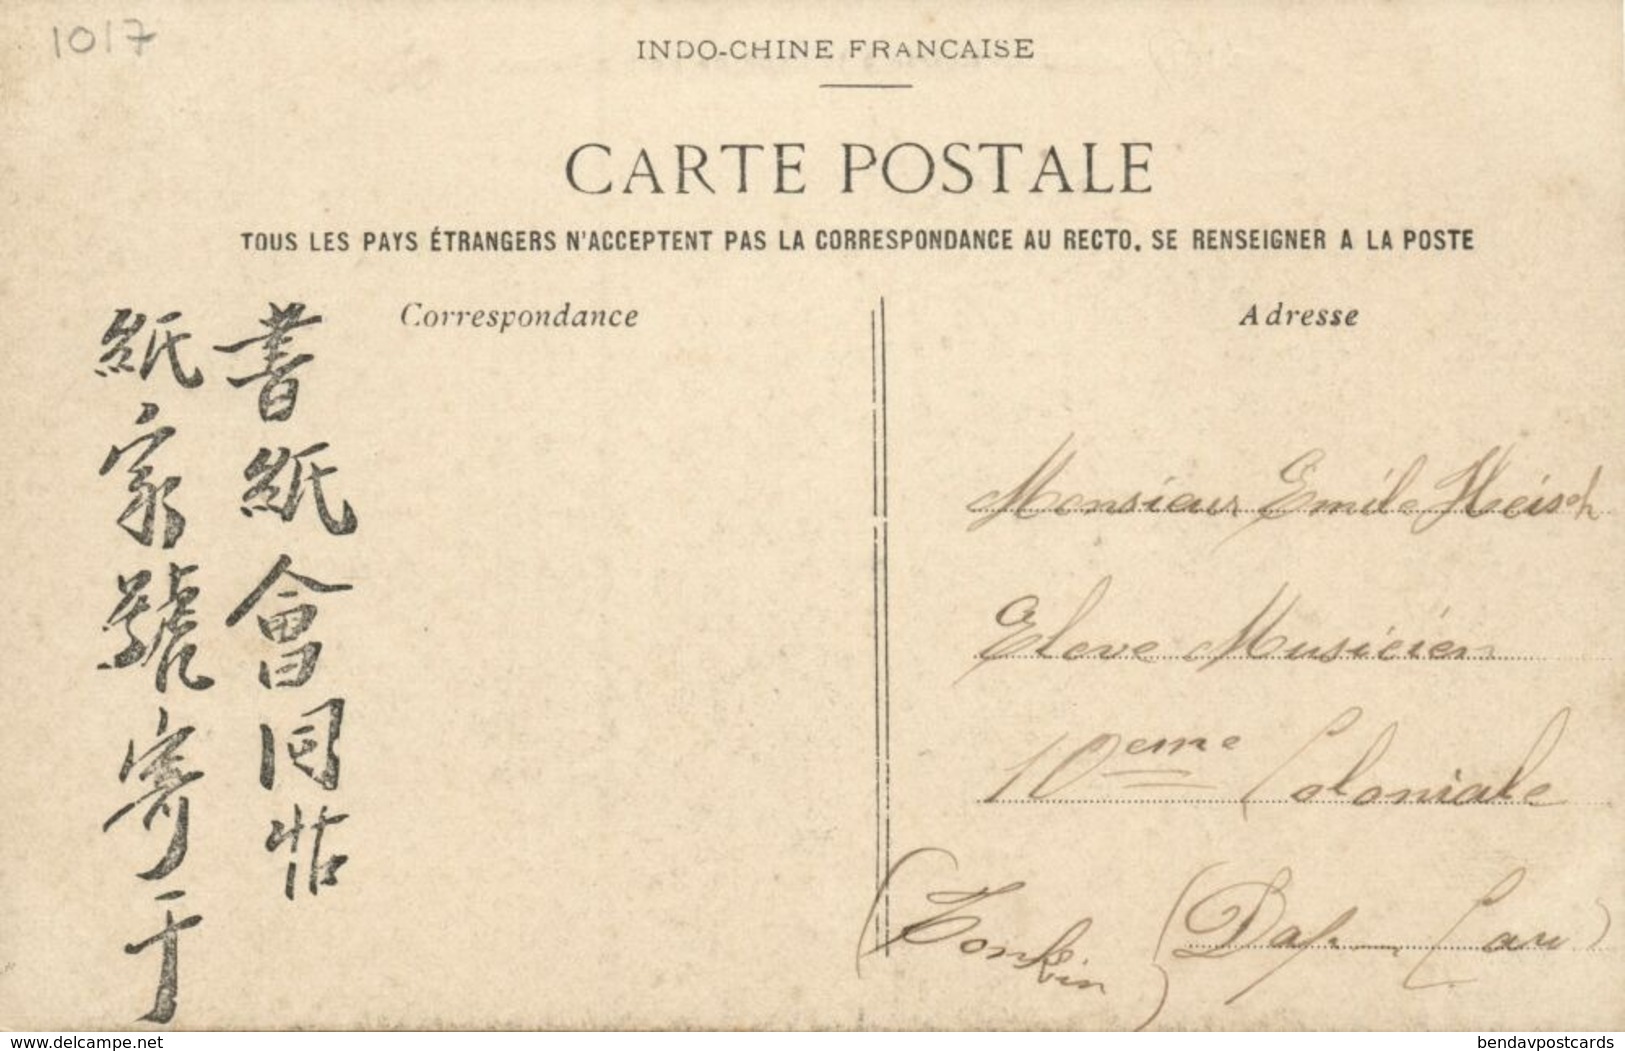 1017
INDO-CHINE FRANCAISE
CARTE POSTALE
TOUS LES PAYS ÉTRANGERS N'ACCEPTENT PAS LA CORRESPONDANCE AU RECTO. SE RENSEIGNER A LA POSTE
Correspondance
書紙會同帖
紙家號寄于
Adresse
Monsieur Emile Heisch
Eleve Musicien
10eme Coloniale
(Tonkin (Dap Cau)
delcampe.net
bendavpostcards